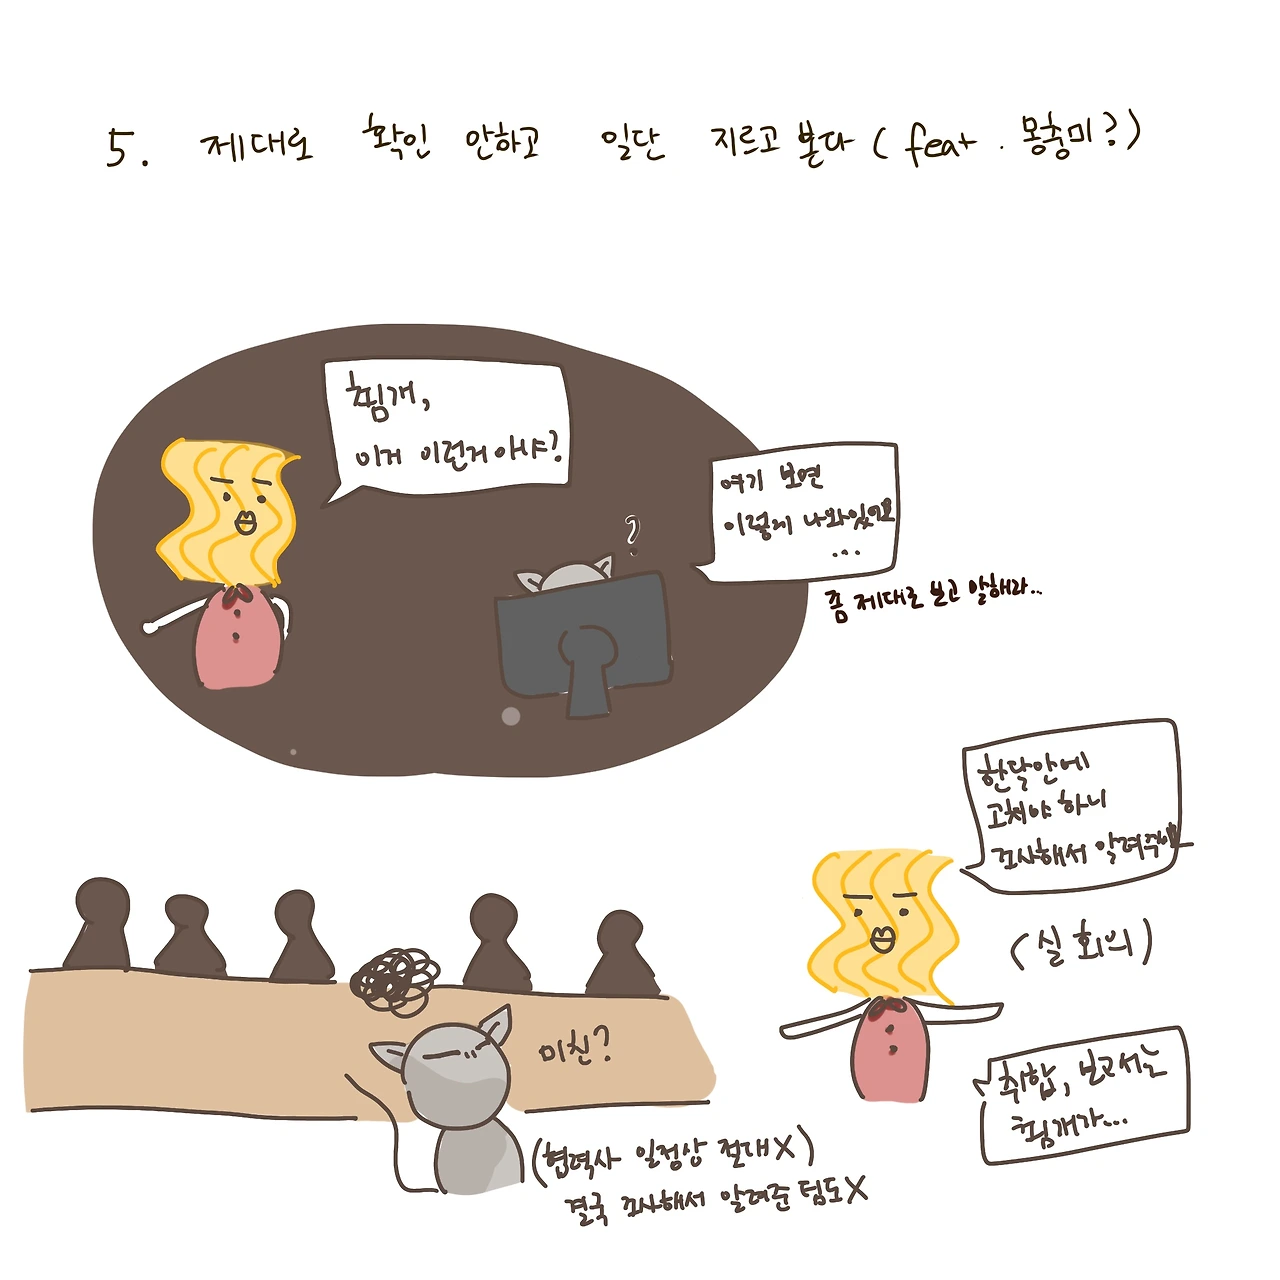 5. 제대로 확인 안하고 일단 지르고 본다 (feat. 몽충미?)
침개,
이거 이런거 아냐?
?
여기 보면
이렇게 나와있어요
...
좀 제대로 보고 말해라..
한달안에
고쳐야 하니
조사해서 알려주세요
(실 회의)
미친?
취합, 보고서는
침개가...
(협력사 일정상 절대X)
결국 조사해서 알려준 팀도X